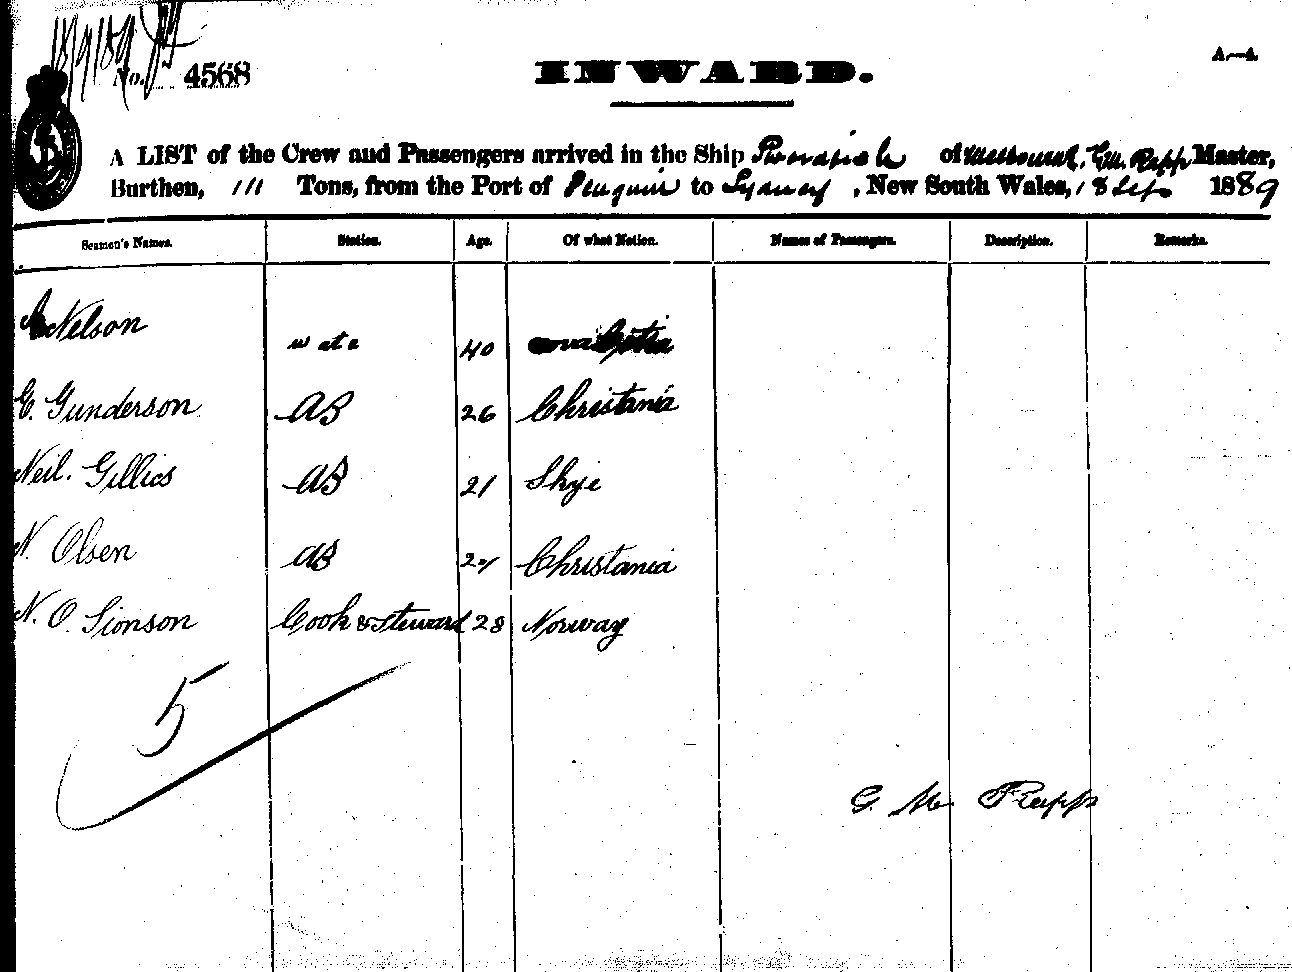 18/9/89
No. 4568
INWARD.
A.—4.
A LIST of the Crew and Passengers arrived in the Ship of Melbourne, G.M. Rapp Master,
Burthen, 111 Tons, from the Port of Penguin to Sydney, New South Wales, 18 Sep 1889
Seamen's Names. Station. Age. Of what Nation. Names of Passengers. Description. Remarks.
Nelson mate 40
C. Gunderson AB 26 Christania
Neil. Gillies AB 21 Skye
N. Olsen AB Christania
N. O. Sionson Cook & Steward 28 Norway
5
G. M. Rapp